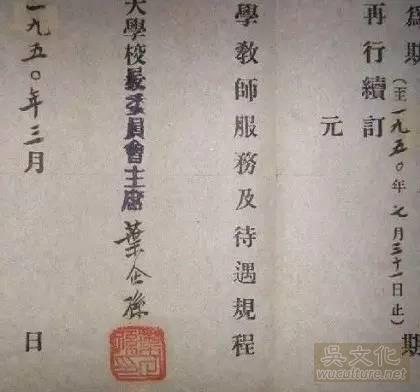 為期(至一九五〇年七月三十一日止)期
再行續訂
元
學教師服務及待遇規程
大學校務委員會主席 葉企孫
一九五〇年三月 日
吳文化
www.wuculture.net